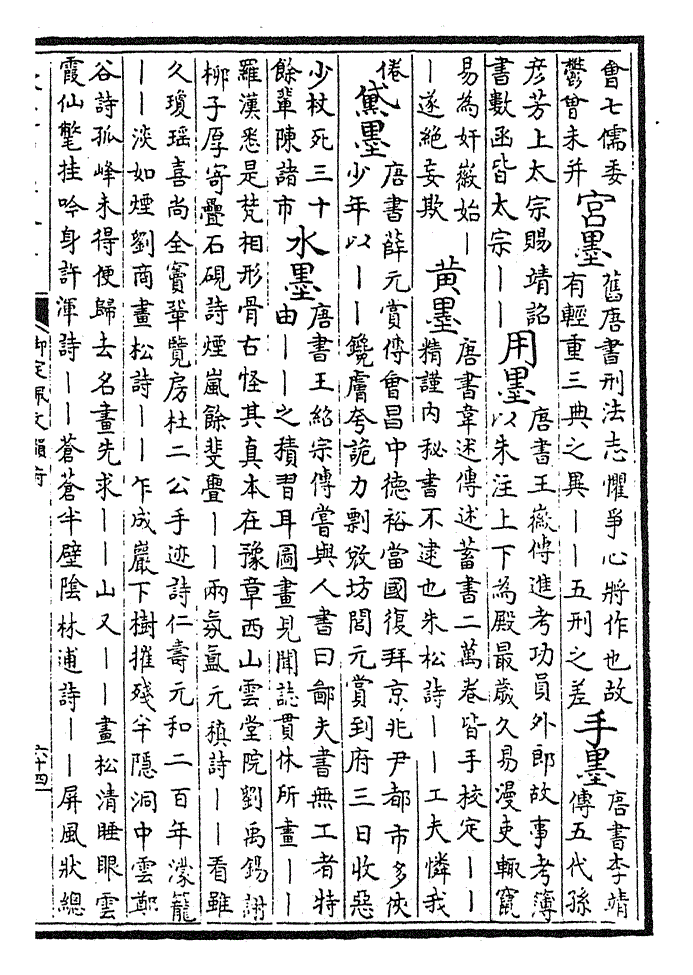 會七儒委
鬱曾未并
宮墨
舊唐書刑法志懼爭心將作也故
有輕重三典之異丨丨五刑之差
手墨
唐書李靖
傳五代孫
彥芳上太宗賜靖詔
書數函皆太宗丨丨
用墨
唐書王徽傳進考功員外郎故事考簿
以朱注上下為殿最歲久易漫吏輒竄
易為奸徽始丨
丨遂絕妄欺
黃墨
唐書韋述傳述蓄書二萬卷皆手校定丨丨
精謹內秘書不逮也朱松詩丨丨工夫憐我
倦
黛墨
唐書薛元賞傳會昌中德裕當國復拜京兆尹都市多俠
少年以丨丨鑱膚夸詭力剽敓坊閭元賞到府三日收惡
少杖死三十
餘輩陳諸市
水墨
唐書王紹宗傳嘗與人書曰鄙夫書無工者特
由丨丨之積習耳圖畫見聞誌貫休所畫丨丨
羅漢悉是梵相形骨古怪其真本在豫章西山雲堂院劉禹錫謝
柳子厚寄疊石硯詩煙嵐餘斐亹丨丨兩氛氳元稹詩丨丨看雖
久瓊瑤喜尚全竇鞏覽房杜二公手迹詩仁壽元和二百年濛籠
丨丨淡如煙劉商畫松詩丨丨乍成巖下樹摧殘半隱洞中雲鄭
谷詩孤峰未得便歸去名畫先求丨丨山又丨丨畫松清睡眼雲
霞仙氅挂吟身許渾詩丨丨蒼蒼半壁陰林逋詩丨丨屏風狀總
御定佩文韻府
六十四